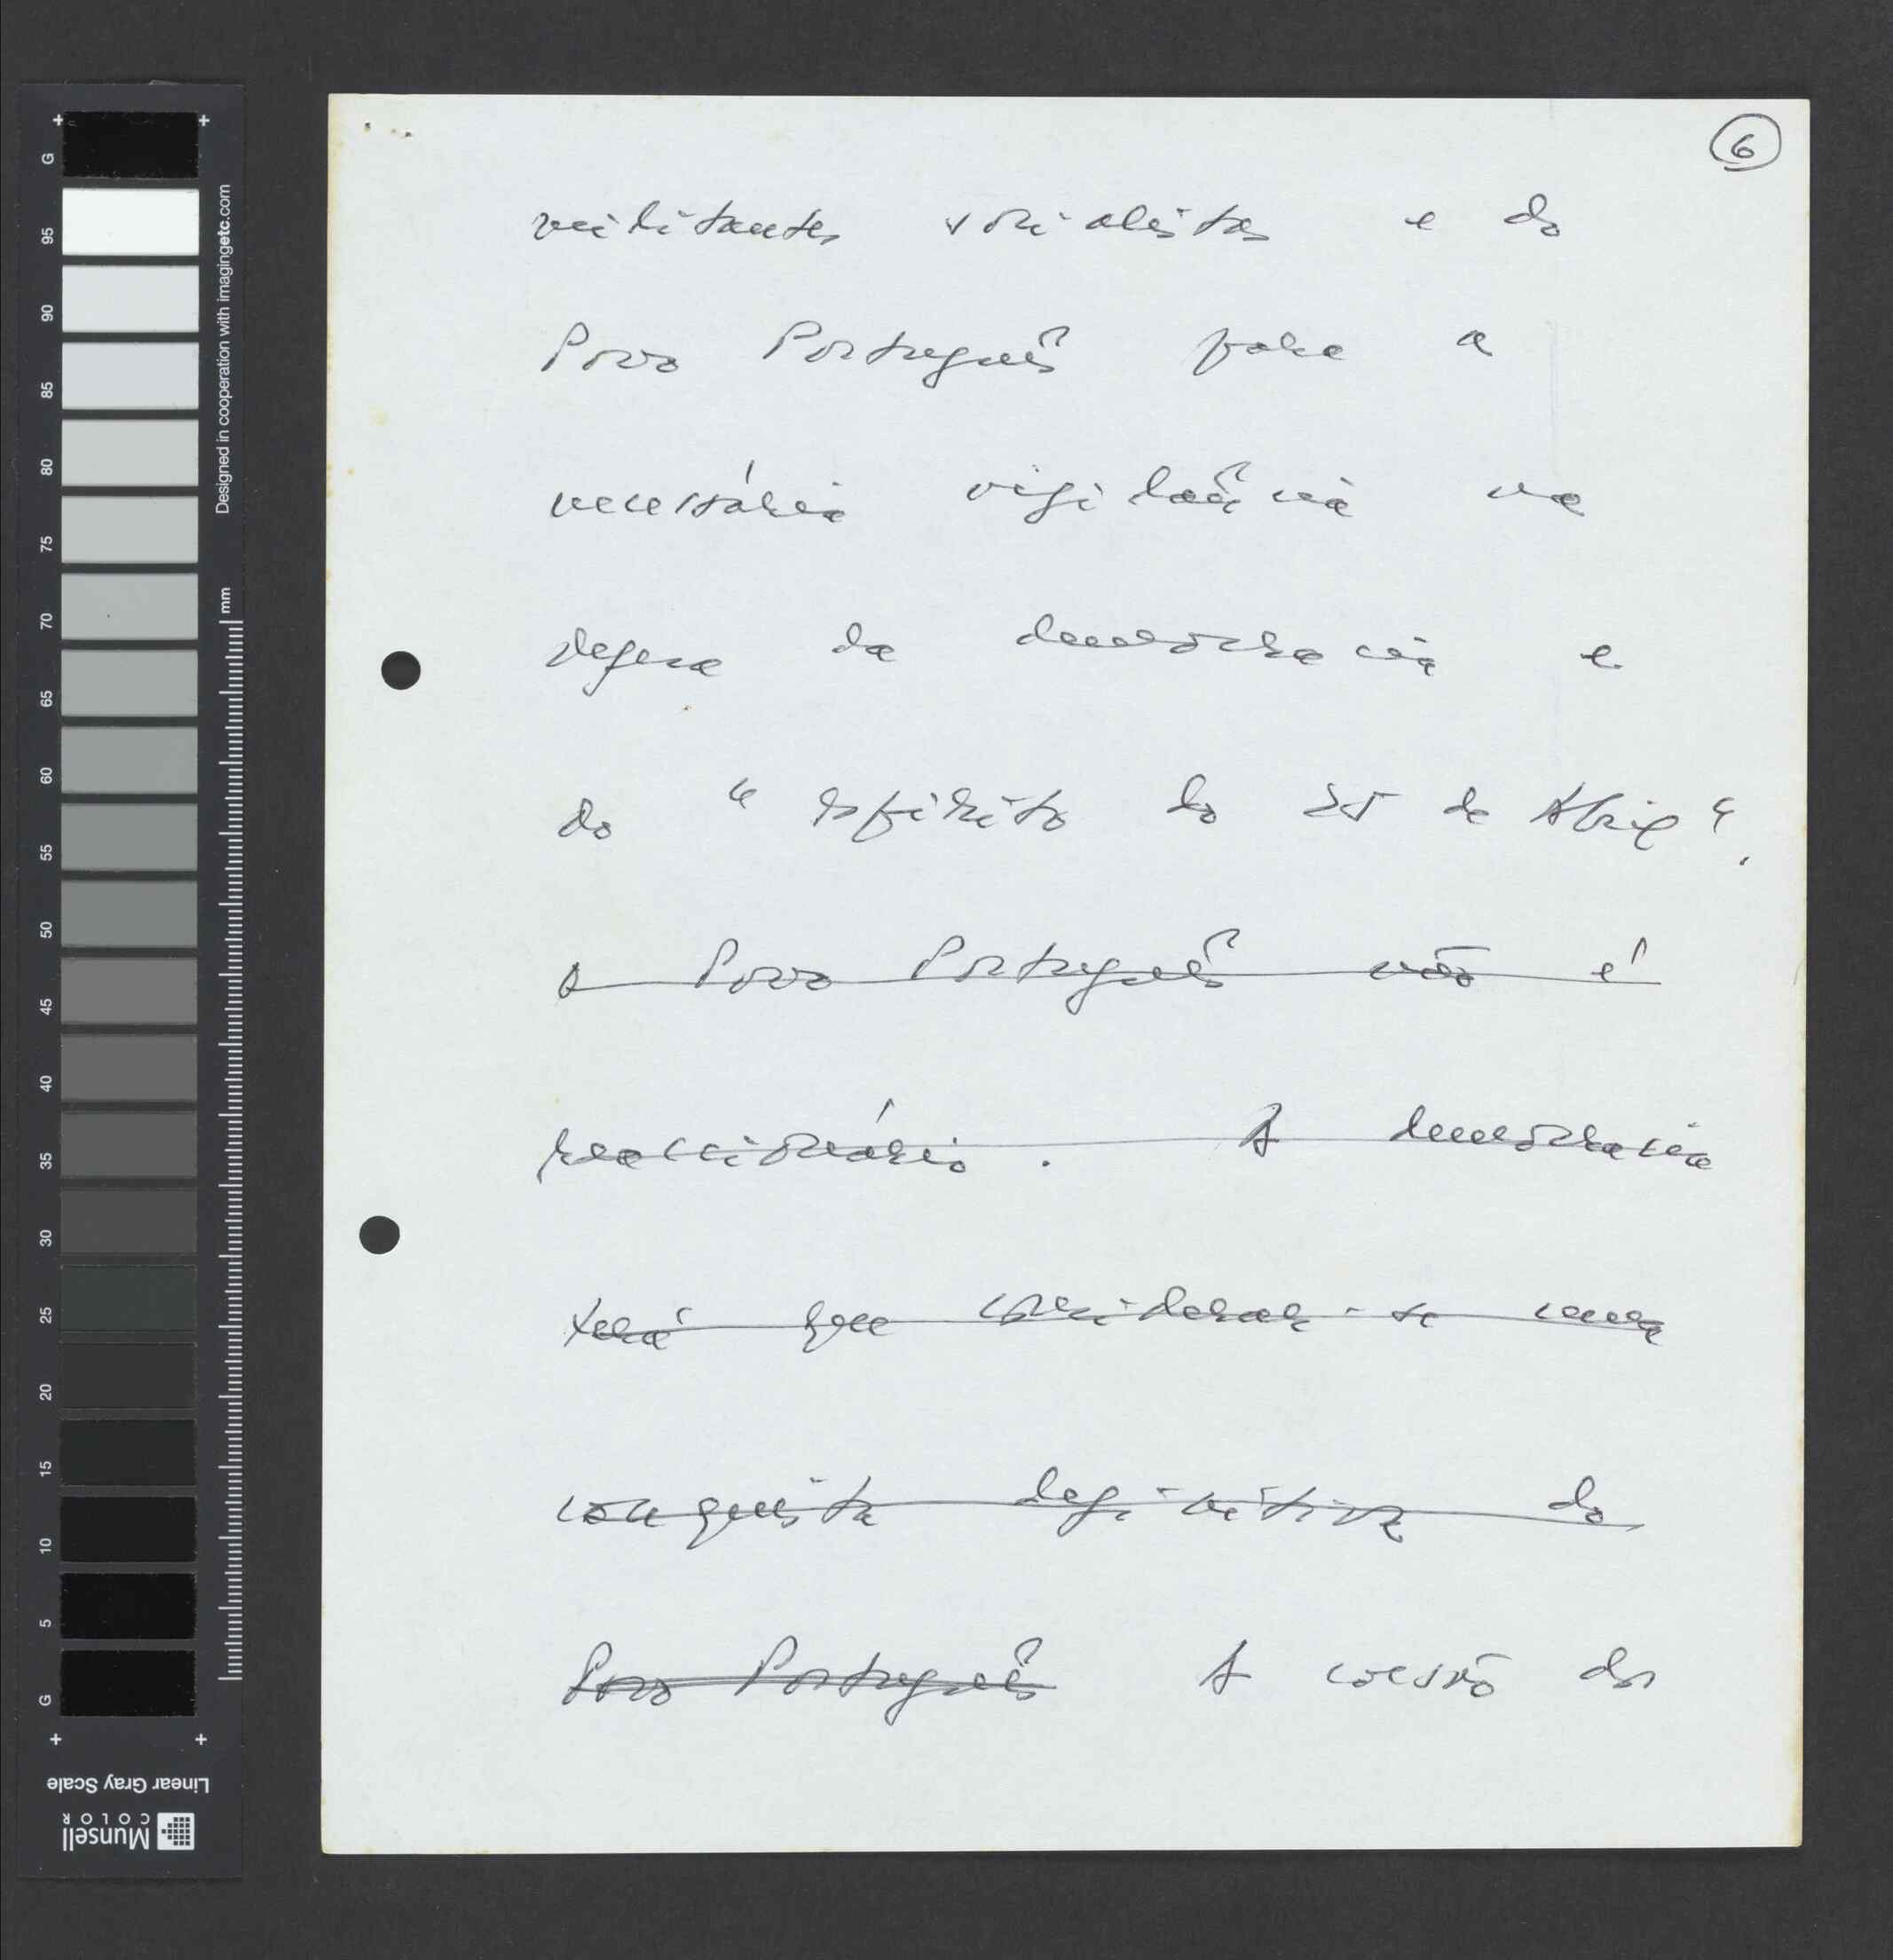 6
militantes socialistas e do
Povo Português para a
necessária vigilância na
defesa da democracia e
do "espírito do 25 de Abril".
O Povo Português não é
reaccionário. A democracia
terá que considerar-se uma
conquista definitiva do
Povo Português A coesão dos
G
95
90
85
80
75
70
65
60
55
50
45
40
35
30
25
20
15
10
5
G
Designed in cooperation with imagingetc.com
mm
Linear Gray Scale
Munsell
COLOR